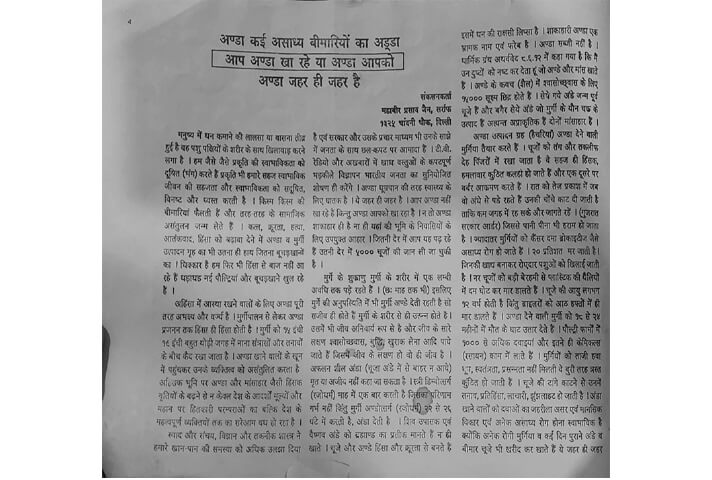 4
अण्डा कई असाध्य बीमारियों का अड्डा
आप अण्डा खा रहे या अण्डा आपको
अण्डा जहर ही जहर है
संकलनकर्ता
महाबीर प्रसाद जैन, सर्राफ
१३२५ चांदनी चौक, दिल्ली
मनुष्य में धन कमाने की लालसा या वासना तीव्र
हुई है वह पशु पक्षियों के शरीर के साथ खिलवाड़ करने
लगा है । हम जैसे जैसे प्रकृति की स्वाभाविकता को
दूषित (भंग) करते हैं प्रकृति भी हमारे सहज स्वाभाविक
जीवन की सहजता और स्वाभाविकता को संदूषित,
विनष्ट और ध्वस्त करती है । किस्म किस्म की
बीमारियां फैलती हैं और तरह-तरह के सामाजिक
असंतुलन जन्म लेते हैं । कत्ल, क्रूरता, हत्या,
आतंकवाद, हिंसा को बढ़ावा देने में अण्डा व मुर्गी
उत्पादन गृह का भी उतना ही साथ जितना बूचड़खानों
का । धिक्कार है हम फिर भी हिंसा से बाज नहीं आ
रहे हैं धड़ाधड़ नई पौल्ट्रियां और बूचड़खाने खुल रहे
हैं ।
अहिंसा में आस्था रखने वालों के लिए अण्डा पूरी
तरह अभक्ष्य और वर्ज्य है । मुर्गीपालन से लेकर अण्डा
प्रजनन तक हिंसा ही हिंसा होती है । मुर्गी को १५ इंची
१६ इंची बहुत थोड़ी जगह में नाना संत्रासों और तनावों
के बीच कैद रखा जाता है । अण्डा खाने वालों के खून
में पहुंचकर उनके व्यक्तित्व को असंतुलित करता है
अहिंसक भूमि पर अण्डा और मांसाहार जैसी हिंसक
वृतियों के बढ़ने से न केवल देश के आदर्शों मूल्यों और
महान पर हितकारी परम्पराओं का बल्कि देश के
महत्वपूर्ण व्यक्तियों तक का सरेआम वध हो रहा है ।
स्वाद और रांधय, विज्ञान और तकनीक शास्त्र ने
हमारे खान-पान की समस्या को अधिक उलझा दिया
है एवं सरकार और उसके प्रचार माध्यम भी उनके सांझे
में जनता के साथ छल-कपट पर आमादा हैं । टी.वी.
रेडियो और अखबारों में खाद्य वस्तुओं के कपटपूर्ण
भड़कीले विज्ञापन भारतीय जनता का सुनियोजित
शोषण ही करेंगे । अण्डा धूम्रपान की तरह स्वास्थ्य के
लिए घातक है । ये जहर ही जहर है । आप अण्डा नहीं
खा रहे हैं किन्तु अण्डा आपको खा रहा है । न तो अण्डा
शाकाहारी ही है ना ही यहां की भूमि के निवासियों के
लिए उपयुक्त आहार । जितनी देर में आप यह पढ़ रहे हैं
उतनी देर में ५००० चूजों की जान ली जा चुकी
है ।
मुर्गे के शुक्राणु मुर्गी के शरीर में एक लम्बी
अवधि तक पड़े रहते हैं । (छः माह तक भी) इसलिए
मुर्गे की अनुपस्थिति में भी मुर्गी अण्डे देती रहती है सो
सजीव ही होते हैं मुर्गी के शरीर से ही उत्पन्न होते है ।
उसमें भी जीव अनिवार्य रूप से है और जीव के सारे
लक्षण श्वासोच्छवास, बुद्धि, खुराक लेना आदि पाये
जाते हैं जिसमें जीव के लक्षण हो वो ही जीव है ।
अफलन शील अंडा (चूजा अंडे में से बाहर न आये)
मृत या अजीव नहीं कहा जा सकता है । स्त्री डिम्बोत्सर्ग
(रजोधर्म) माह में एक बार करती है जिसका परिणाम
गर्भ नहीं किंतु मुर्गी अण्डोत्सर्ग (रजोधर्म) २२ से २६
घंटे में करती है, अंडा देती है । शिव उपासक एवं
वैष्णव अंडे को ब्रह्माण्ड का प्रतीक मानते हैं न ही
खाते । चूजे और अण्डे हिंसा और क्रूरता से बनते हैं
इसमें धन की राक्षसी लिप्सा है । शाकाहारी अण्डा एक
भ्रामक नाम एवं फरेब है । अण्डा सब्जी नहीं है ।
धार्मिक ग्रंथ अथर्ववेद ८.६.१२ में कहा गया है कि मैं
उन दुष्टों को नष्ट कर देता हूं जो अण्डे और मांस खाते
हैं । अण्डे के कवच (शैल) में श्वासोच्छवास के लिए
१५००० सूक्ष्म छिद्र होते हैं । सेये गये अंडे जन्म पूर्व
चूजे हैं और बगैर सेये अंडे जो मुर्गी के यौन चक्र के
उत्पाद हैं अत्यन्त अप्राकृतिक हैं दोनों मांसाहार है ।
अण्डा उत्पादन ग्रह (हैचरियां) अण्डा देने वाली
मुर्गियां तैयार करते हैं । चूजों को तंग और तकलीफ
देह पिंजरों में रखा जाता है वे सहज ही हिंसक,
हमलावार कुंठित कलही हो जाते हैं और एक दूसरे पर
बर्बर आक्रमण करते हैं । रात को तेज प्रकाश में जब
वो अंधे से पड़े रहते हैं उनकी चौंचे काट दी जाती है
ताकि कम जगह में रह सकें और जागते रहें । (गुजरात
सरकार आर्डर) जिससे पानी पीना भी हराम हो जाता
है । ज्यादातर मुर्गियों को कैंसर दमा ब्रोंकाइटीज जैसे
असाध्य रोग हो जाते हैं । २० प्रतिशत मर जाती है ।
जिनकी खाद्य बनाकर रोएदार पशुओं को खिलाई जाती
है । नर चूजों को बड़ी बेरहमी से प्लास्टिक की थैलियों
में दम घोट कर मार डालते हैं । चूजे की आयु लगभग
१२ वर्ष होती है किंतु ब्राइलरों को आठ हफ्तों में ही
मार डालते हैं । अण्डे देने वाली मुर्गी को १८ से २४
महीनों में मौत के घाट उतार देते हैं । पौल्ट्री फार्मों में
१००० से अधिक दवाइयां और इतने ही केमिकल्स
(रसायन) काम में लाते हैं । मुर्गियों को ताजी हवा
धूप, स्वतंत्रता, प्रसन्नता नहीं मिलती वे बुरी तरह त्रस्त
कुंठित हो जाती हैं । चूजे की टांगे काटने से उनमें
तनाव, प्रतिहिंसा, लाचारी, झुंझलाहट हो जाती है । अंडा
खाने वालों को दवाओं का जहरीला असर एवं मानसिक
विकार एवं अनेक असाध्य रोग होना स्वाभाविक है
क्योंकि अनेक रोगी मुर्गियां व कई दिन पुराने अंडे व
बीमार चूजे भी खरीद कर खाते हैं ये जहर ही जहर